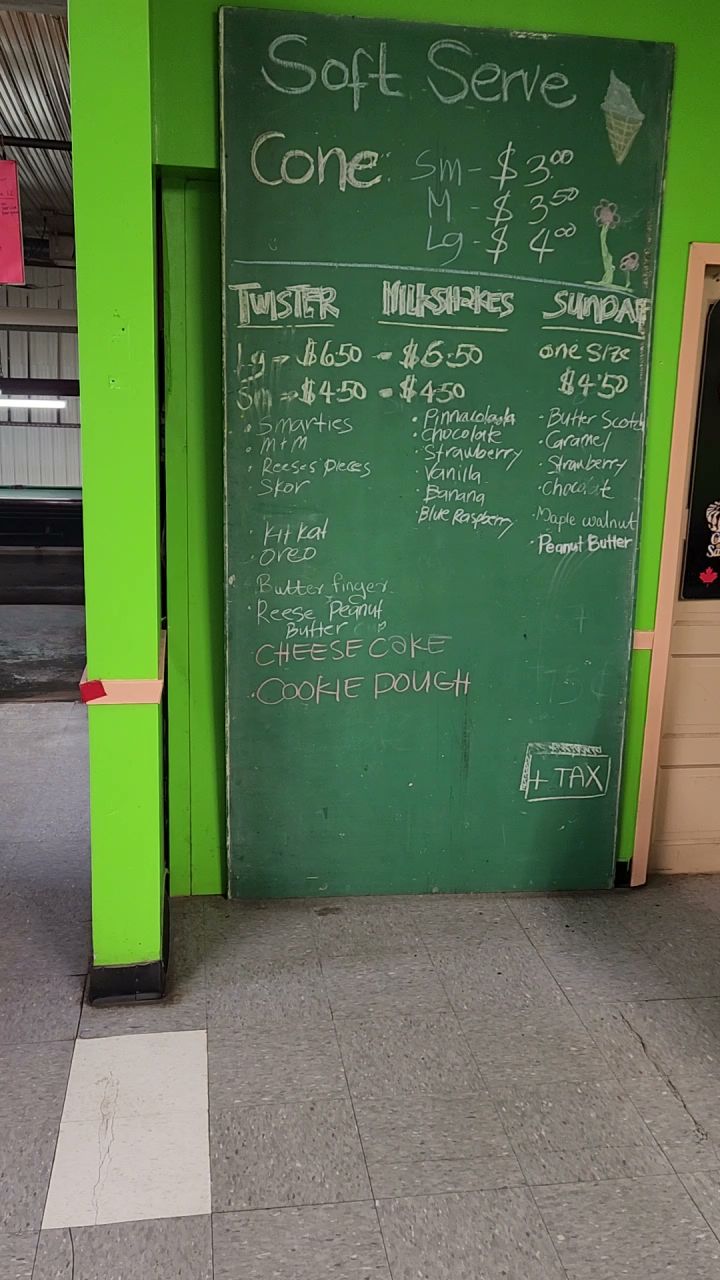 Soft Serve
Cone Sm - $ 3.00
M - $ 3.50
Lg - $ 4.00
TWISTER MILKSHAKES SUNDAE
Lg - $6.50 - $6.50 one size
Sm - $4.50 - $4.50 $4.50
• Smarties
• M+M
• Reeses Pieces
Skor
• Kit Kat
• Oreo
Butterfinger
• Reese Peanut
Butter cup
• CHEESE CAKE
• COOKIE DOUGH
• Pinnacolada
• Chocolate
• Strawberry
• Vanilla
• Banana
• Blue Raspberry
• Butter Scotch
• Caramel
• Strawberry
• Chocolate
• Maple walnut
• Peanut Butter
+ TAX